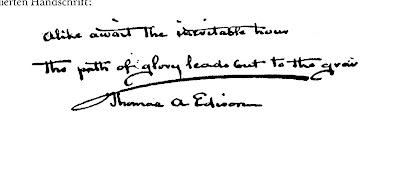 ierten Handschrift:
Alike await the inevitable hour
The path of glory leads but to the grave
Thomas A Edison